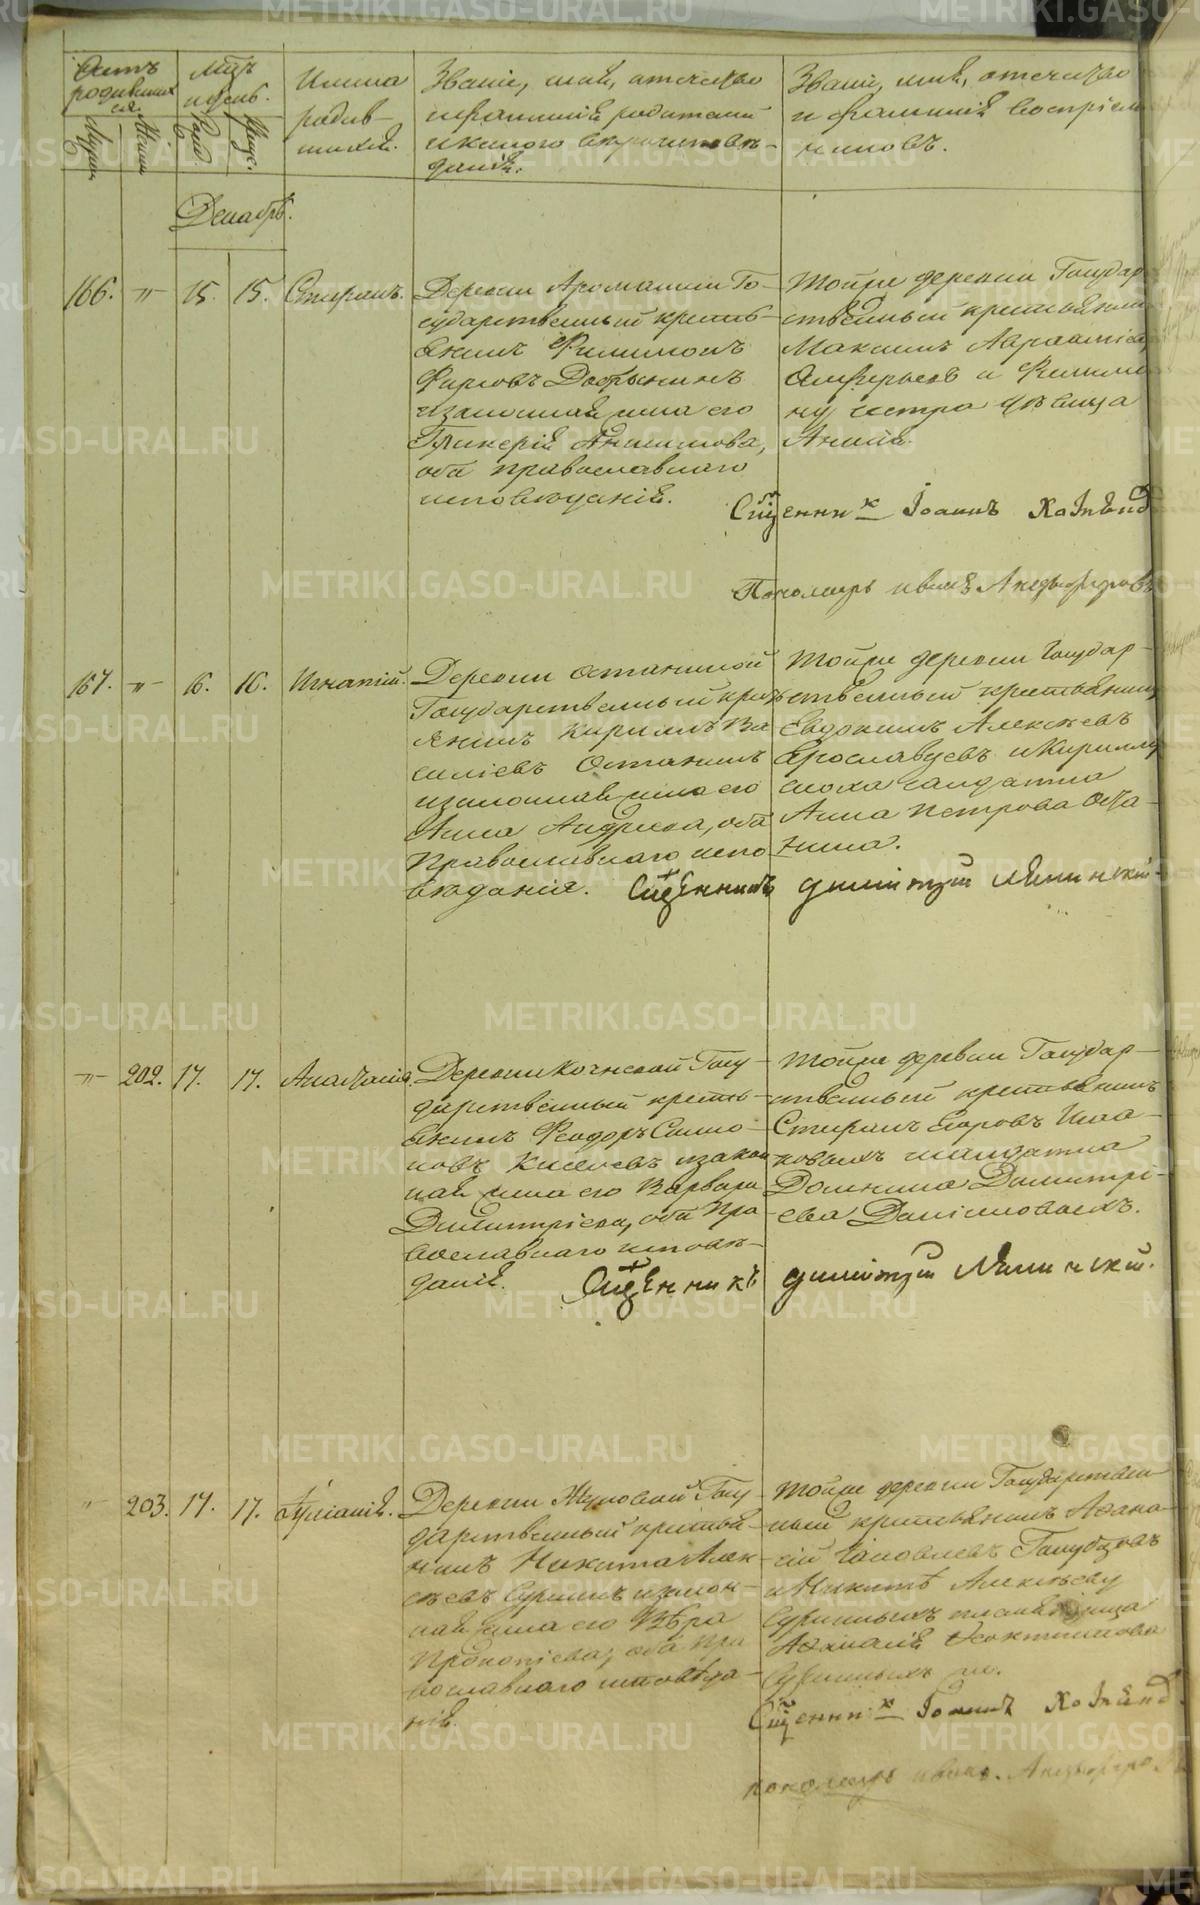 Счетъ родившихся.
Мужск.
Женск.
Мѣсяцъ и день.
Рожд.
Крещ.
Имена родившихся.
Званіе, имя, отечество
и фамилія родителей
и какого вѣроисповѣ-
данія.
Званіе, имя, отечество
и фамилія воспріем-
никовъ.
Декабрь.
166. -"- 15. 15. Спиранъ.
Деревни Го-
сударственный кресть-
янинъ Филимонъ
Фирсовъ Добрынинъ
и законная жена его
Гликерія Анисимова,
оба православнаго
исповѣданія.
Тойже деревни Государ-
ственный крестьянинъ
Максимъ
и Филимо-
ну сестра дѣвица
Анна.
Сщенникъ Іоаннъ
Пономарь Иванъ
167. -"- 16. 16. Игнатій.
Деревни Останиной
Государственный крест
янинъ Кириллъ Ва
силіевъ Останинъ
и законная жена его
Анна Андреева, оба
Православнаго испо
вѣданія.
Тойже деревни Государ-
ственный крестьянинъ
Евдокимъ Алексѣевъ
Ярославцевъ и Кириллу
сноха солдатка
Анна Петрова Оста-
нина.
Сщенникъ Димитрій
-"- 202. 17. 17. Анастасія.
Деревни Кочневой Госу-
дарственный кресть-
янинъ Феодоръ Симо-
новъ Киселевъ и закон
ная жена его Варвара
Димитріева, оба Пра
вославнаго исповѣ-
данія.
Тойже деревни Государ-
ственный крестьянинъ
Егоровъ
солдатка
Домнина Димитрі-
ева Даниловыхъ.
Сщенникъ Димитрій
" 203. 17. 17. Іуліанія.
Деревни Жуковой Госу-
дарственный крестья-
нинъ Никита Алек-
сѣевъ Суринъ и закон-
ная жена его Вѣра
Прокопіева, оба Пра
вославнаго исповѣда-
нія.
Тойже деревни Государствен-
ный крестьянинъ Афана-
сій Яковлевъ Голубцовъ
и Никитѣ Алексѣеву
Суриныхъ
Афанасія
Суриныхъ
Сщенникъ Іоаннъ
Пономарь Иванъ
METRIKI.GASO-URAL.RU